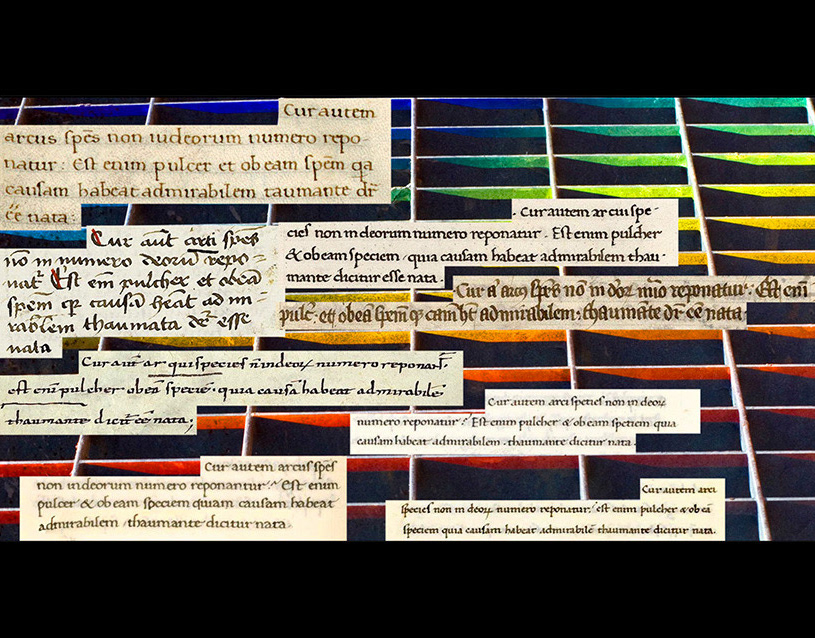 Cur autem
arcus spēs non iudeorum numero repo
natur: Est enim pulcer et ob eam spēm qa
causam habeat admirabilem taumante dr̄
eē nata:
Cur aūt arcti spēs
nō in numero deorū repo-
natᷣ Est em̄ pulcher et obeā
spem causā heāt ad mi-
rab̄lem thaumata dr̄ esse
nata
. Cur autem arcui spe-
cies non in deorum numero reponatur. Est enim pulcher
& ob eam speciem, quia causam habeat admirabilem thau-
mante dicitur esse nata.
Cur spēs nō in reponatur. Est em̄
et obeā spem admirabilem: thaumante dr̄ eē nata
Cur aūt ar qui species n̄ indeoꝝ numero
est enī pulcher obeā specie. quia causā habeat admirabilē
thaumante eē nata;
Cur autem arci species non in deoꝝ
numero reponatur? Est enim pulcher & ob eam speciem quia
causam habeat admirabilem. thaumante dicitur nata.
Cur autem arcus spēs
non uideorum numero reponantur? Est enim
pulcer & ob eam speciem quiam causam habeat
admirabilem thaumante dicitur nata.
Cur autem arci
species non in deoꝝ numero reponatur? est enim pulcher & ob eā
speciem quia causam habeat admirabilē thaumante dicitur nata.